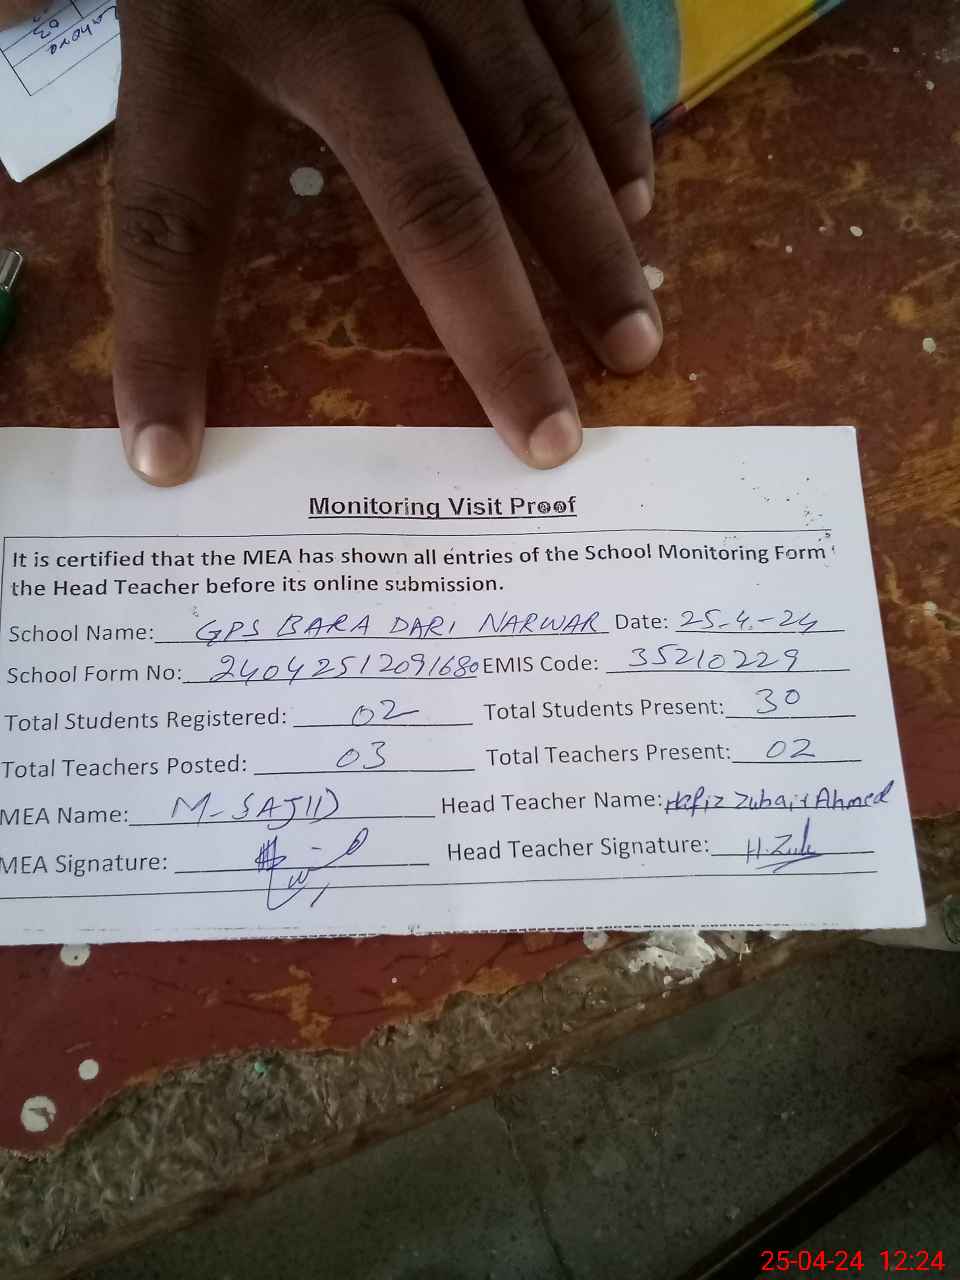 Lahore
03
Monitoring Visit Proof
It is certified that the MEA has shown all entries of the School Monitoring Form
the Head Teacher before its online submission.
School Name: GPS BARA DARI NARWAR Date: 25-4-24
School Form No: 24042512091680 EMIS Code: 35210229
Total Students Registered: 02 Total Students Present: 30
Total Teachers Posted: 03 Total Teachers Present: 02
MEA Name: M-SAJID Head Teacher Name: Hafiz Zubair Ahmed
MEA Signature: Head Teacher Signature: H.Zub
25-04-24 12:24